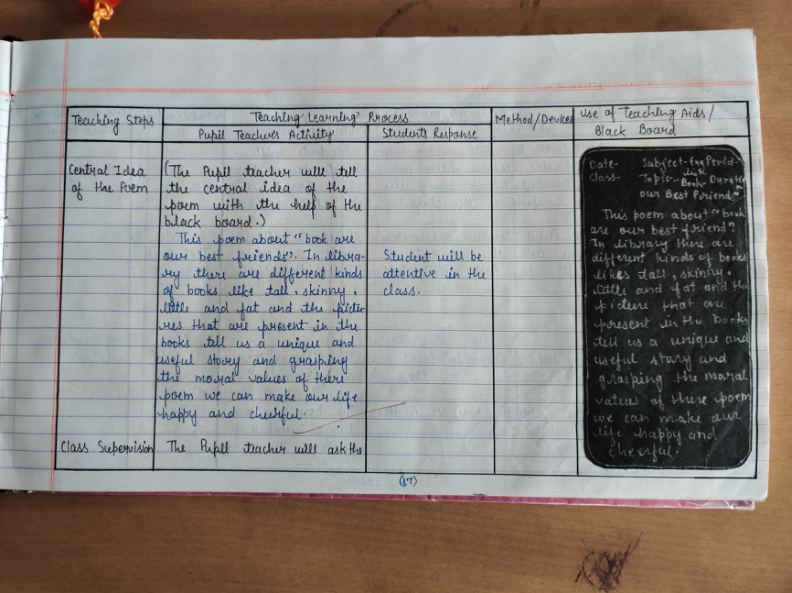 Teaching Steps
Teaching Learning Process
Method/Devices
Use of Teaching Aids/
Black Board
Pupil Teacher's Activity
Students Response
Central Idea
of the Poem
(The Pupil teacher will tell
the central idea of the
poem with the help of the
black board.)
This poem about "book are
our best friends". In libra-
ry there are different kinds
of books like tall, skinny,
little and fat and the pictu-
res that are present in the
books tell us a unique and
useful story and grasping
the moral values of there
poem we can make our life
happy and cheerful.
Student will be
attentive in the
class.
Date-
Class-
Subject-Eng Period-
Topic-
Book
our Best Friend"
This poem about "book
are our best friend"
In library there are
different kinds of books
likes tall, skinny,
little and fat and the
picture that are
present in the books
tell us a unique and
useful story and
grasping the moral
values of these poem
we can make our
life happy and
cheerful.
Class Supervision
The Pupil teacher will ask the
(17)